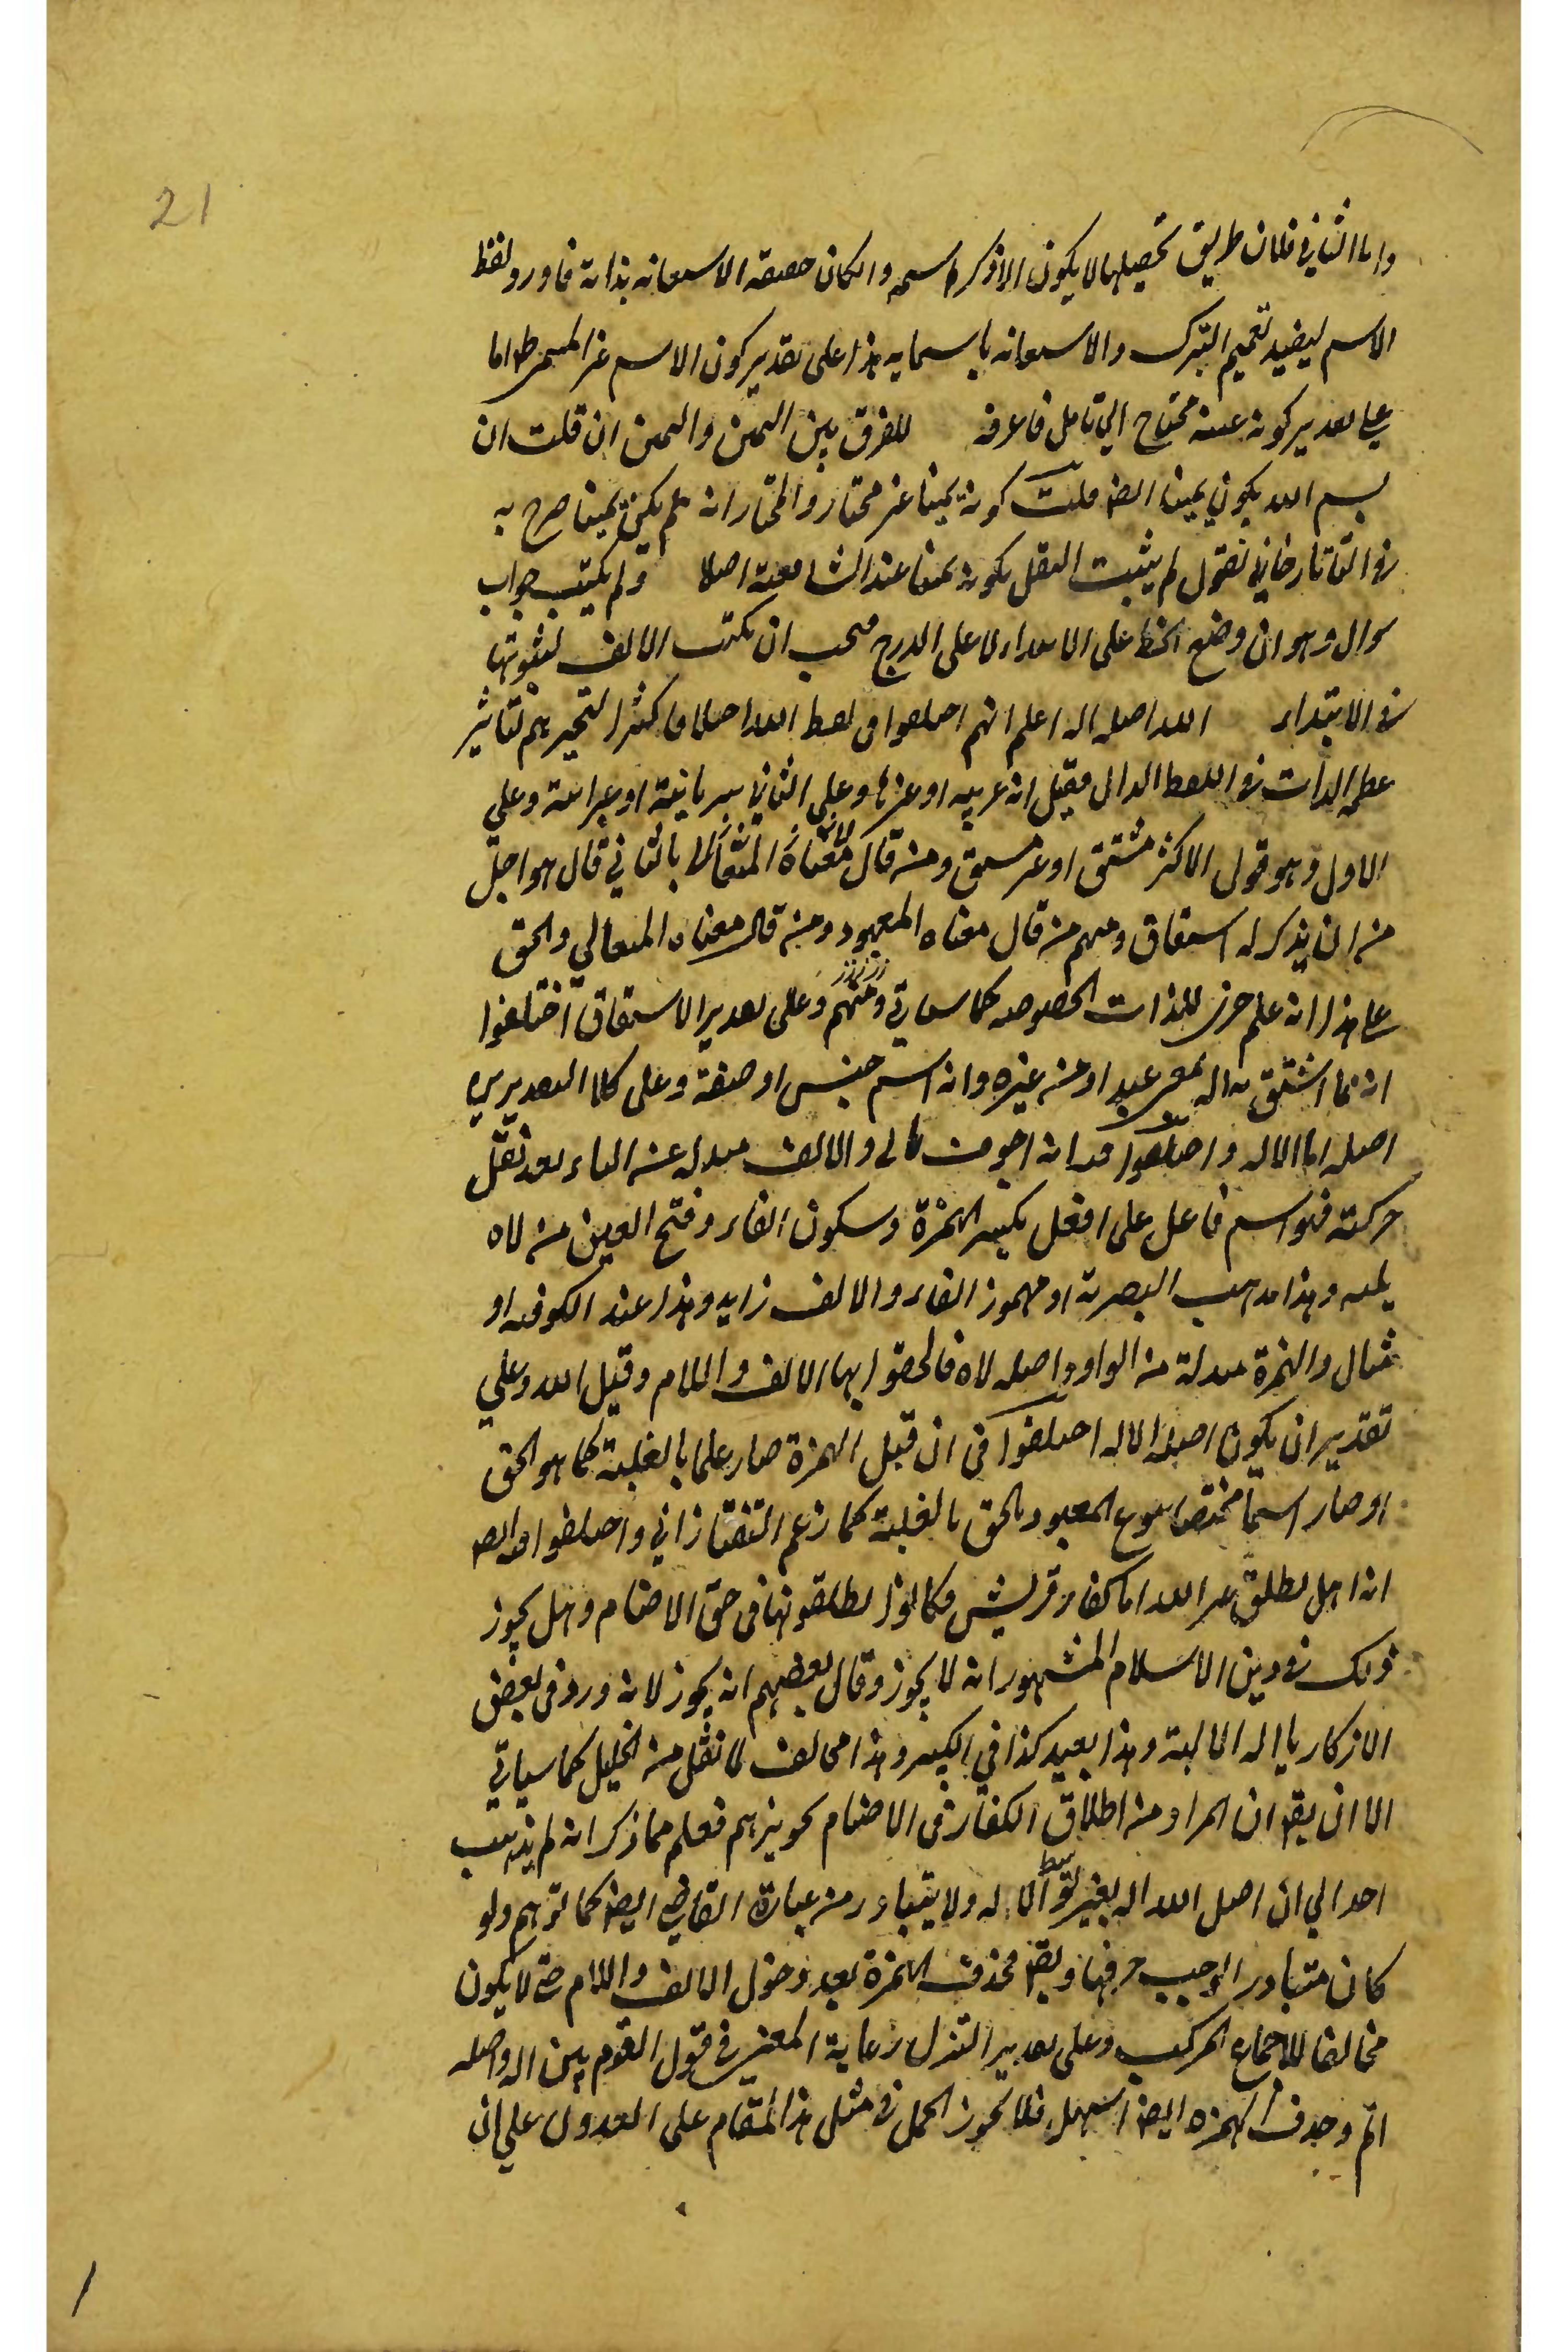 21
واما الثاني فلان طريق تحصيلها لا يكون الا ذكر اسمه وان كان حقيقة الاستعانة بذاته فاورد لفظ
الاسم ليفيد تعميم التبرك والاستعانة باسمايه هذا على تقدير كون الاسم غير المسمى ظ واما
على تقدير كونه عينه محتاج الي تامل فاعرفه للفرق بين اليمين والتيمن ان قلت ان
بسم الله يكون يمينا ايضا قلت كونه يمينا غير مختار والمختار انه لم يكن يمينا صرح به
في التاتارخاني نقول لم يثبت النقل بكونه يمينا عند الشافعية اصلا ولم يكتب جواب
سوال وهو ان وضع الخط على الابتداء لا على الدرج فيجب ان يكتب الالف لثبوتها
في الابتداء الله اصله اله اعلم انهم اختلفوا في لفظ الله اختلافا كثيرا لتحيرهم لتاثير
عظمة الذات في اللفظ الدال فقيل انه عربية او غيرها وعلى الثاني سريانية او عبرانية وعلى
الاول وهو قول الاكثر مشتق او غير مشتق ومن قال بالثاني قال هو اجل
من ان يذكر له اشتقاق ومنهم من قال معناه المعبود ومن قال معناه المتعالي والحق
على هذا انه علم للذات المخصوصه كما سياتي ومنهم وعلى تقدير الاشتقاق اختلفوا
انه مما اشتق من اله بمعنى عبد او من غيره وانه اسم جنس او صفة وعلى كلا التقديرين
اصله اما الاله واختلفوا فيه انه اجوف والالف مبدله عن الياء بعد نقل
حركته فهو اسم فاعل على افعل بكسر الهمزة وسكون الفاء وفتح العين من لاه
يليه وهذا مذهب البصرية او مهموز الفاء والالف زايد وهذا عند الكوفيه او
مثال والهمزة مبدلة من الواو واصله لاه فالحقوا بها الالف واللام وقيل الله وعلي
تقدير ان يكون اصله الاله اختلفوا في ان قبل الهمزة صار علما بالغلبة كما هو الحق
او صار اسما مختصا بنوع المعبود بالحق بالغلبة كما زعم التفتازاني واختلفوا فيه ايضا
انه هل يطلق غير الله اما كفار قريش فكانوا يطلقونها في حق الاصنام وهل يجوز
ذلك في دين الاسلام المشهور انه لا يجوز وقال بعضهم انه يجوز لانه ورد في بعض
الاذكار يا اله الالهة وهذا بعيد كذا في الكبير وهذا مخالف لما نقل من الخليل كما سياتي
الا ان يقا ان المراد من اطلاق الكفار في الاصنام تجويزهم فعلم مما ذكر انه لم يذهب
احد الي ان اصل الله اله بغير توسط الاله ولا يتبادر من عبارة القاضي ايضا كما توهم ولو
كان متبادرا لوجب حرفها ويقا فحذف الهمزة بعد دخول الالف واللام حتى لا يكون
مخالفا للاجماع المركب وعلى تقدير التنزل رعاية المعنى في قول القوم بين اله واصله
اله وحذف الهمزه ايضا اسهل فلا يجوز الحمل في مثل هذا المقام على العدول على ان